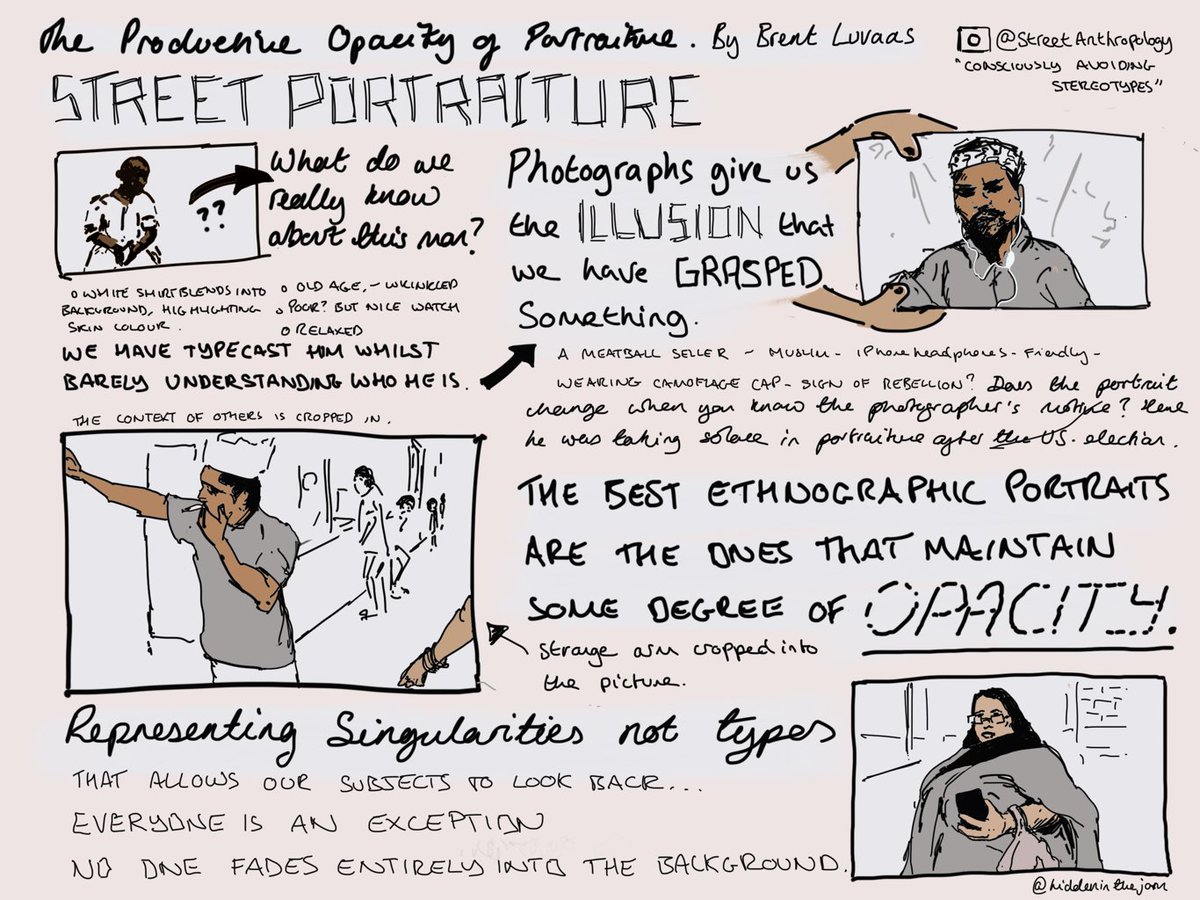 The Productive Opacity of Portraiture. By Brent Luvaas
@StreetAnthropology
"CONSCIOUSLY AVOIDING
STEREOTYPES"
STREET PORTRAITURE
??
What do we
really know
about this man?
O WHITE SHIRT BLENDS INTO
BACKGROUND, HIGHLIGHTING
SKIN COLOUR.
O OLD AGE, - WRINKLED
O POOR? BUT NICE WATCH
O RELAXED
WE HAVE TYPECAST HIM WHILST
BARELY UNDERSTANDING WHO HE IS.
Photographs give us
the ILLUSION that
we have GRASPED
Something.
A MEATBALL SELLER ~ MUSLIM - iPhone headphones - Friendly -
WEARING CAMOFLAGE CAP - SIGN OF REBELLION? Does the portrait
change when you know the photographer's motive? Here
he was taking solace in portraiture after the US. election.
THE CONTEXT OF OTHERS IS CROPPED IN.
THE BEST ETHNOGRAPHIC PORTRAITS
ARE THE ONES THAT MAINTAIN
SOME DEGREE OF OPACITY.
Strange arm cropped into
the picture.
Representing Singularities not types
THAT ALLOWS OUR SUBJECTS TO LOOK BACK...
EVERYONE IS AN EXCEPTION
NO ONE FADES ENTIRELY INTO THE BACKGROUND.
@hiddeninthejam